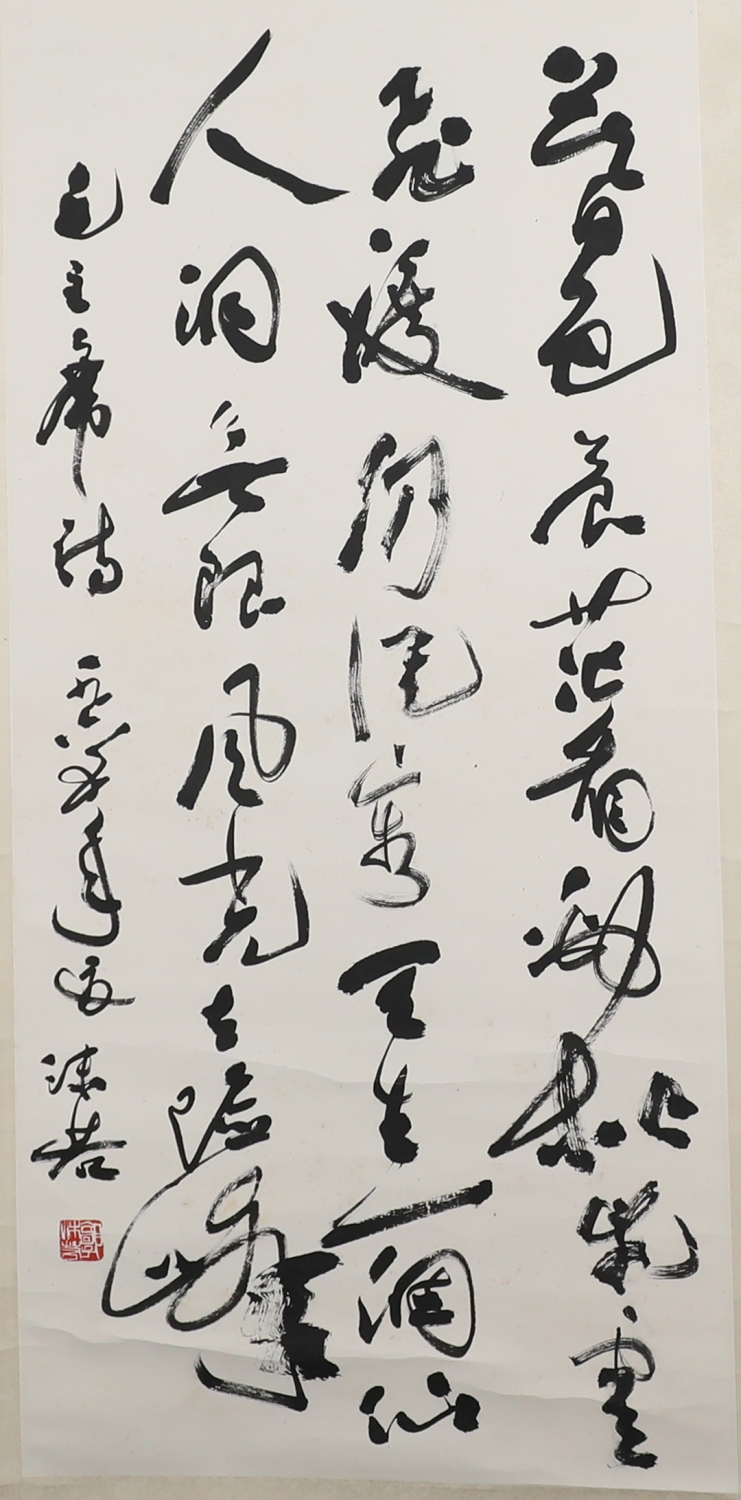 暮色苍茫看劲松乱云
飞渡仍从容天生一个仙
人洞无限风光在险峰
毛主席诗 沫若
郭沫若